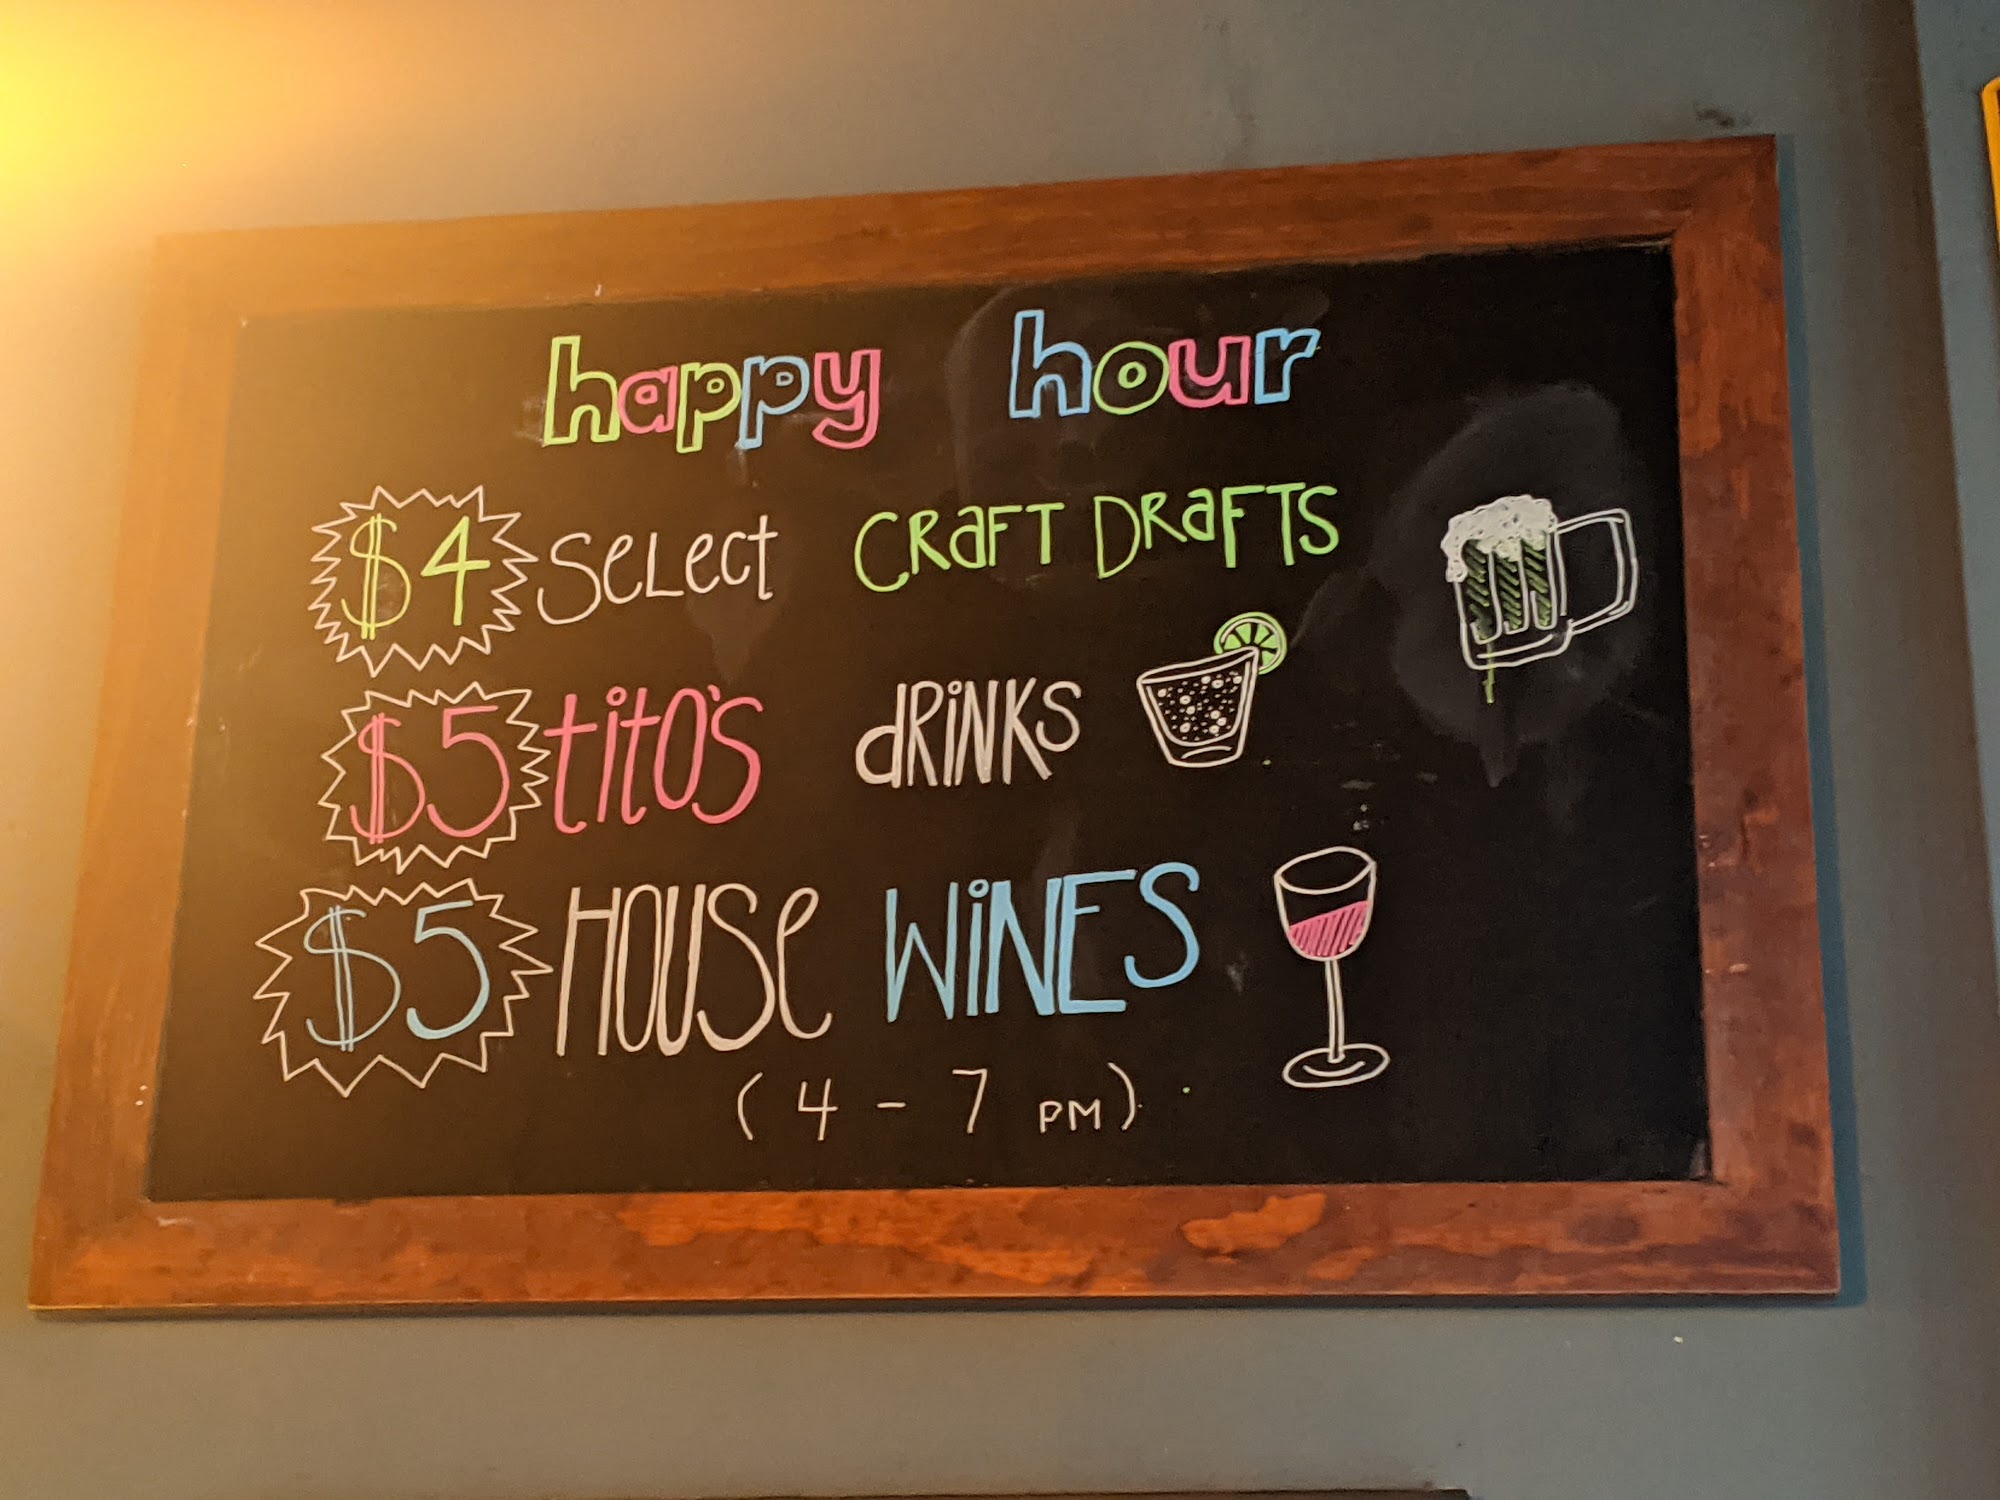 happy hour
$4 SeLect CRaFT DRaFTS
$5 tito's dRiNKS
$5 HOUSe WiNES
(4 - 7 PM)